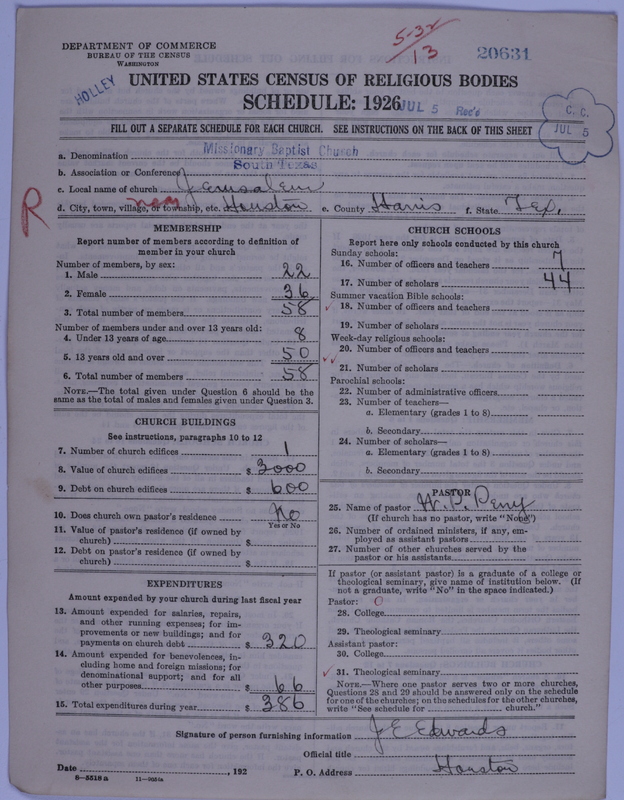 DEPARTMENT OF COMMERCE
BUREAU OF THE CENSUS
WASHINGTON
5-32
13
20631
HOLLEY
UNITED STATES CENSUS OF RELIGIOUS BODIES
SCHEDULE: 1926
JUL 5 Rec'd
C. C.
JUL 5
FILL OUT A SEPARATE SCHEDULE FOR EACH CHURCH. SEE INSTRUCTIONS ON THE BACK OF THIS SHEET
a. Denomination Missionary Baptist Church
b. Association or Conference South Texas
c. Local name of church Jerusalem
R
near
d. City, town, village, or township, etc. Houston e. County Harris f. State Tex.
MEMBERSHIP
Report number of members according to definition of
member in your church
Number of members, by sex:
1. Male 22
2. Female 36
3. Total number of members 58
Number of members under and over 13 years old:
4. Under 13 years of age 8
5. 13 years old and over 50
6. Total number of members 58
NOTE.—The total given under Question 6 should be
same as the total of males and females given under Question 3.
CHURCH BUILDINGS
See instructions, paragraphs 10 to 12
7. Number of church edifices 1
8. Value of church edifices $ 3000
9. Debt on church edifices $ 600
10. Does church own pastor's residence No
Yes or No
11. Value of pastor's residence (if owned by
church) $
12. Debt on pastor's residence (if owned by
church) $
EXPENDITURES
Amount expended by your church during last fiscal year
13. Amount expended for salaries, repairs,
and other running expenses; for im-
provements or new buildings; and for
payments on church debt $ 320
14. Amount expended for benevolences, in-
cluding home and foreign missions; for
denominational support; and for all
other purposes $ 66
15. Total expenditures during year $ 386
CHURCH SCHOOLS
Report here only schools conducted by this church
Sunday schools:
16. Number of officers and teachers 7
17. Number of scholars 44
Summer vacation Bible schools:
18. Number of officers and teachers
19. Number of scholars
Week-day religious schools:
20. Number of officers and teachers
21. Number of scholars
Parochial schools:
22. Number of administrative officers
23. Number of teachers—
a. Elementary (grades 1 to 8)
b. Secondary
24. Number of scholars—
a. Elementary (grades 1 to 8)
b. Secondary
PASTOR
25. Name of pastor W. P. Perry
(If church has no pastor, write "None")
26. Number of ordained ministers, if any, em-
ployed as assistant pastors
27. Number of other churches served by the
pastor or his assistants
If pastor (or assistant pastor) is a graduate of a college or
theological seminary, give name of institution below. (If
not a graduate, write "No" in the space indicated.)
Pastor: 0
28. College
29. Theological seminary
Assistant pastor:
30. College
31. Theological seminary
NOTE.—Where one pastor serves two or more churches,
Questions 28 and 29 should be answered only on the schedule
for one of the churches; on the schedules for the other churches,
write "See schedule for church."
Signature of person furnishing information J E Edwards
Official title
Date , 192 P. O. Address Houston
8—5518 a